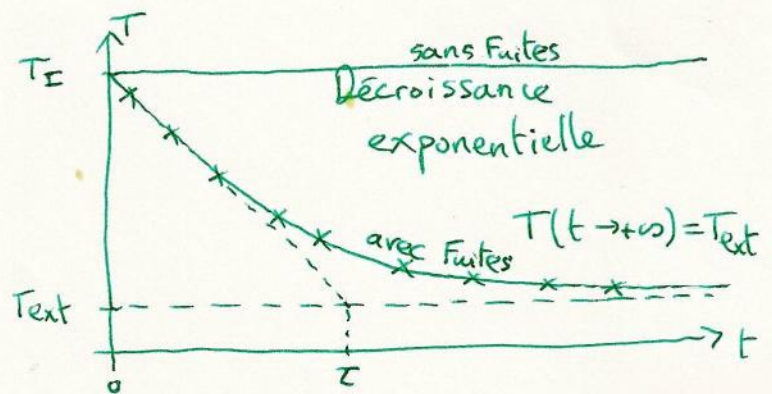 T
sans Fuites
T_I
Décroissance
exponentielle
avec Fuites
T(t→+∞) = Text
Text
t
0
τ